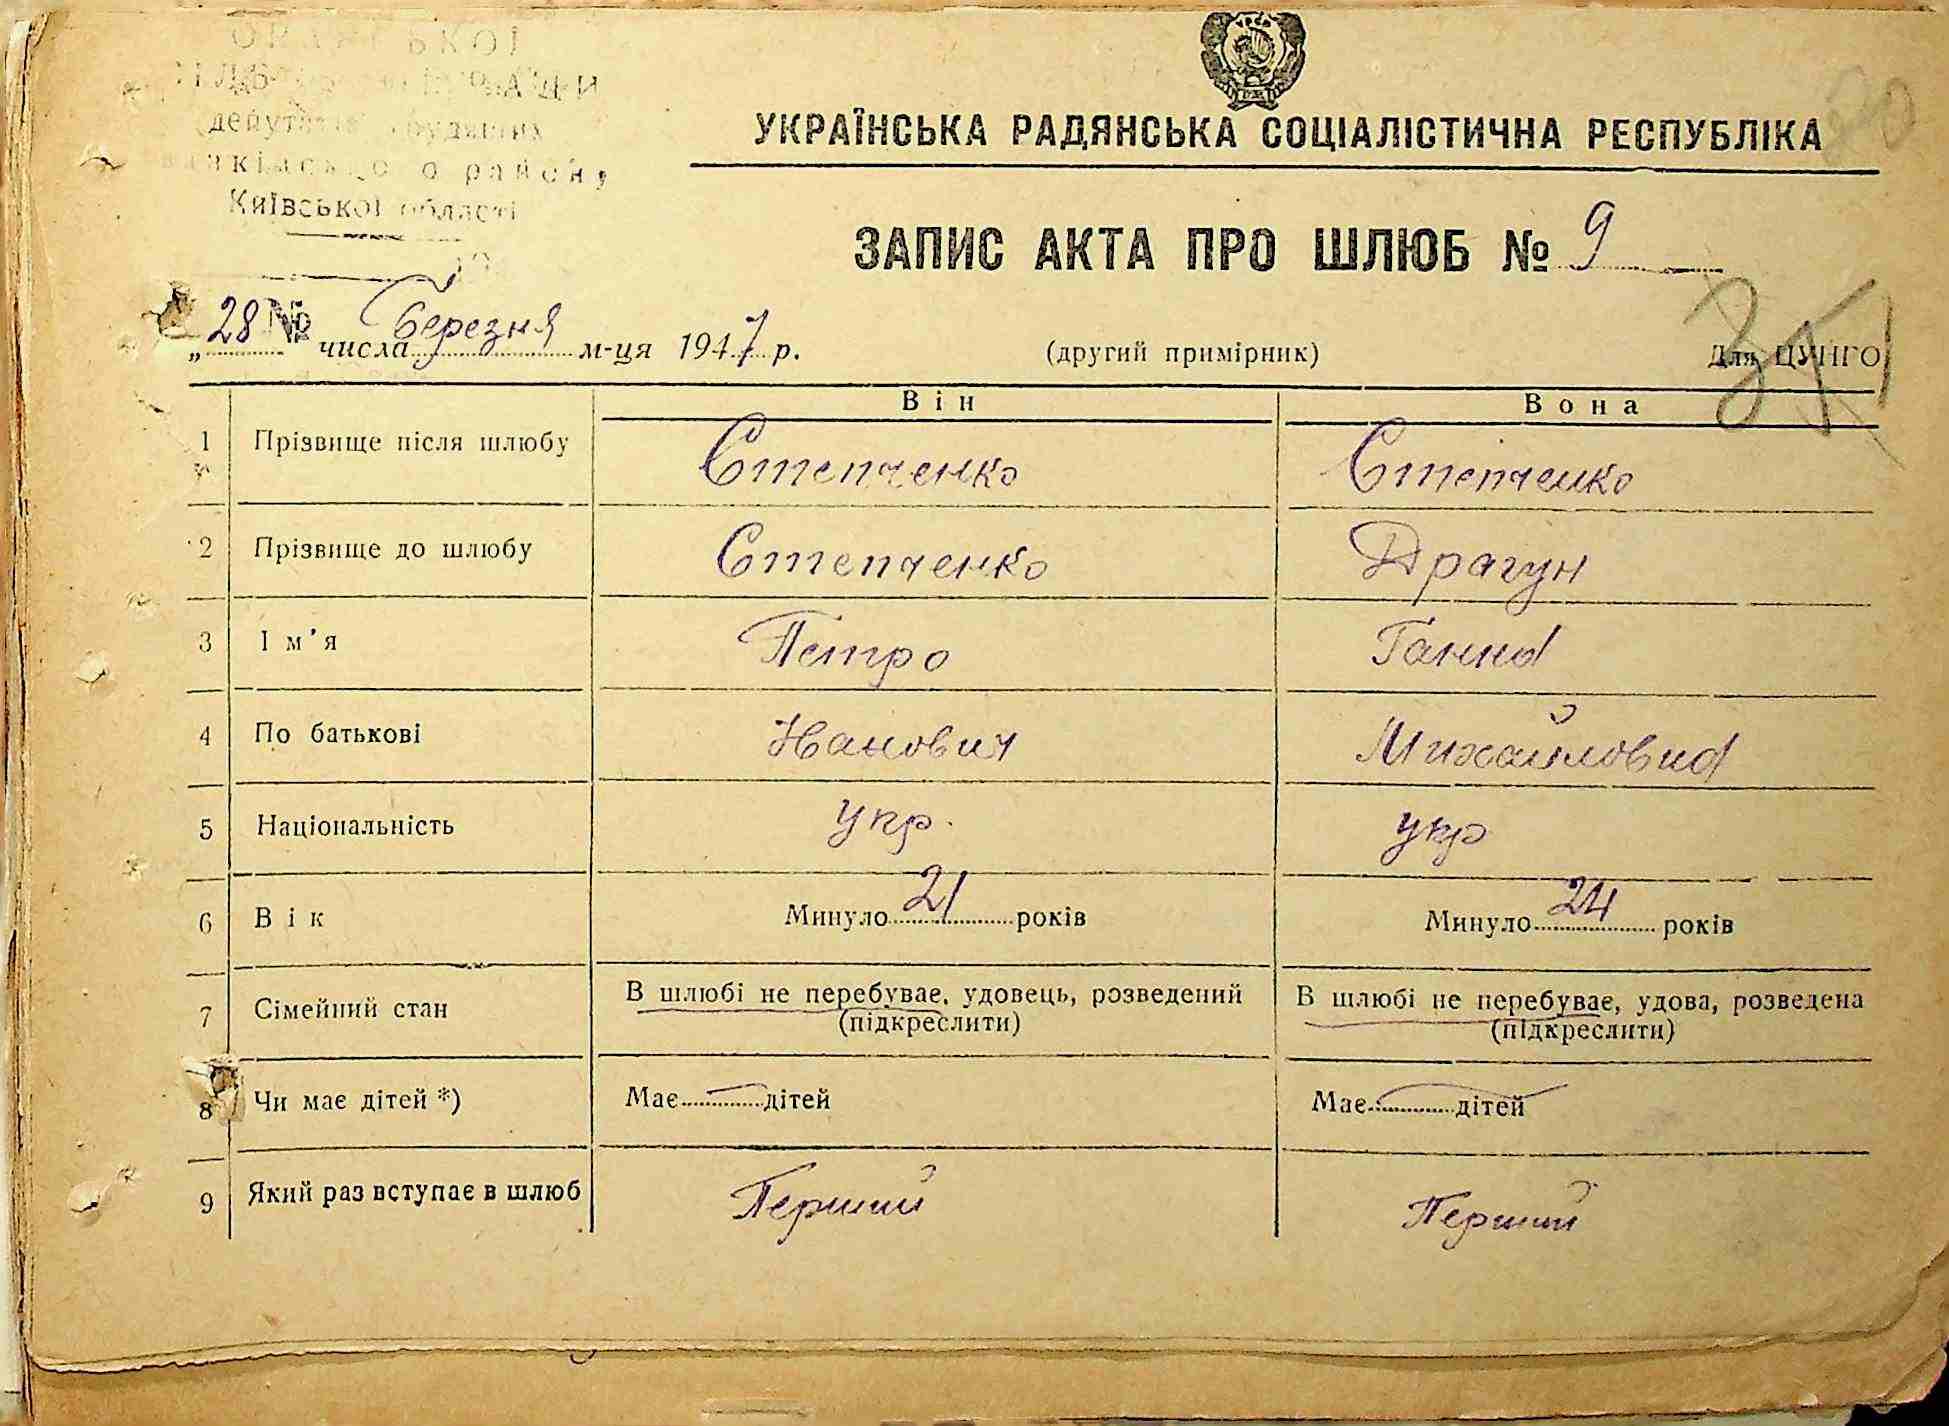 УКРАЇНСЬКА РАДЯНСЬКА СОЦІАЛІСТИЧНА РЕСПУБЛІКА
депутатів трудящих
району
Київської області
ЗАПИС АКТА ПРО ШЛЮБ № 9
№
„ 28 числа Березня м-ця 1947 р. (другий примірник) Для ЦУНГО
Він Вона
1 Прізвище після шлюбу Степченко Степченко
2 Прізвище до шлюбу Степченко Драгун
3 Ім'я Петро Ганна
4 По батькові Иванович Михайловна
5 Національність укр. укр
6 Вік Минуло 21 років Минуло 24 років
7 Сімейний стан В шлюбі не перебуває, удовець, розведений (підкреслити) В шлюбі не перебуває, удова, розведена (підкреслити)
8 Чи має дітей *) Має — дітей Має — дітей
9 Який раз вступає в шлюб Перший Перший